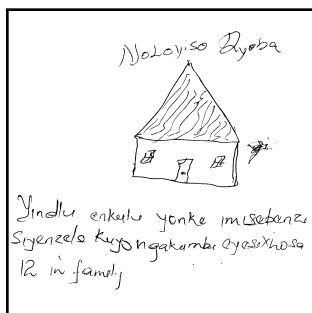 Noloyiso Qyoba
Yindlu enkulu yonke imisebenzi
Siyenzela kuyo ngakumbi eyesixhosa
12 in family